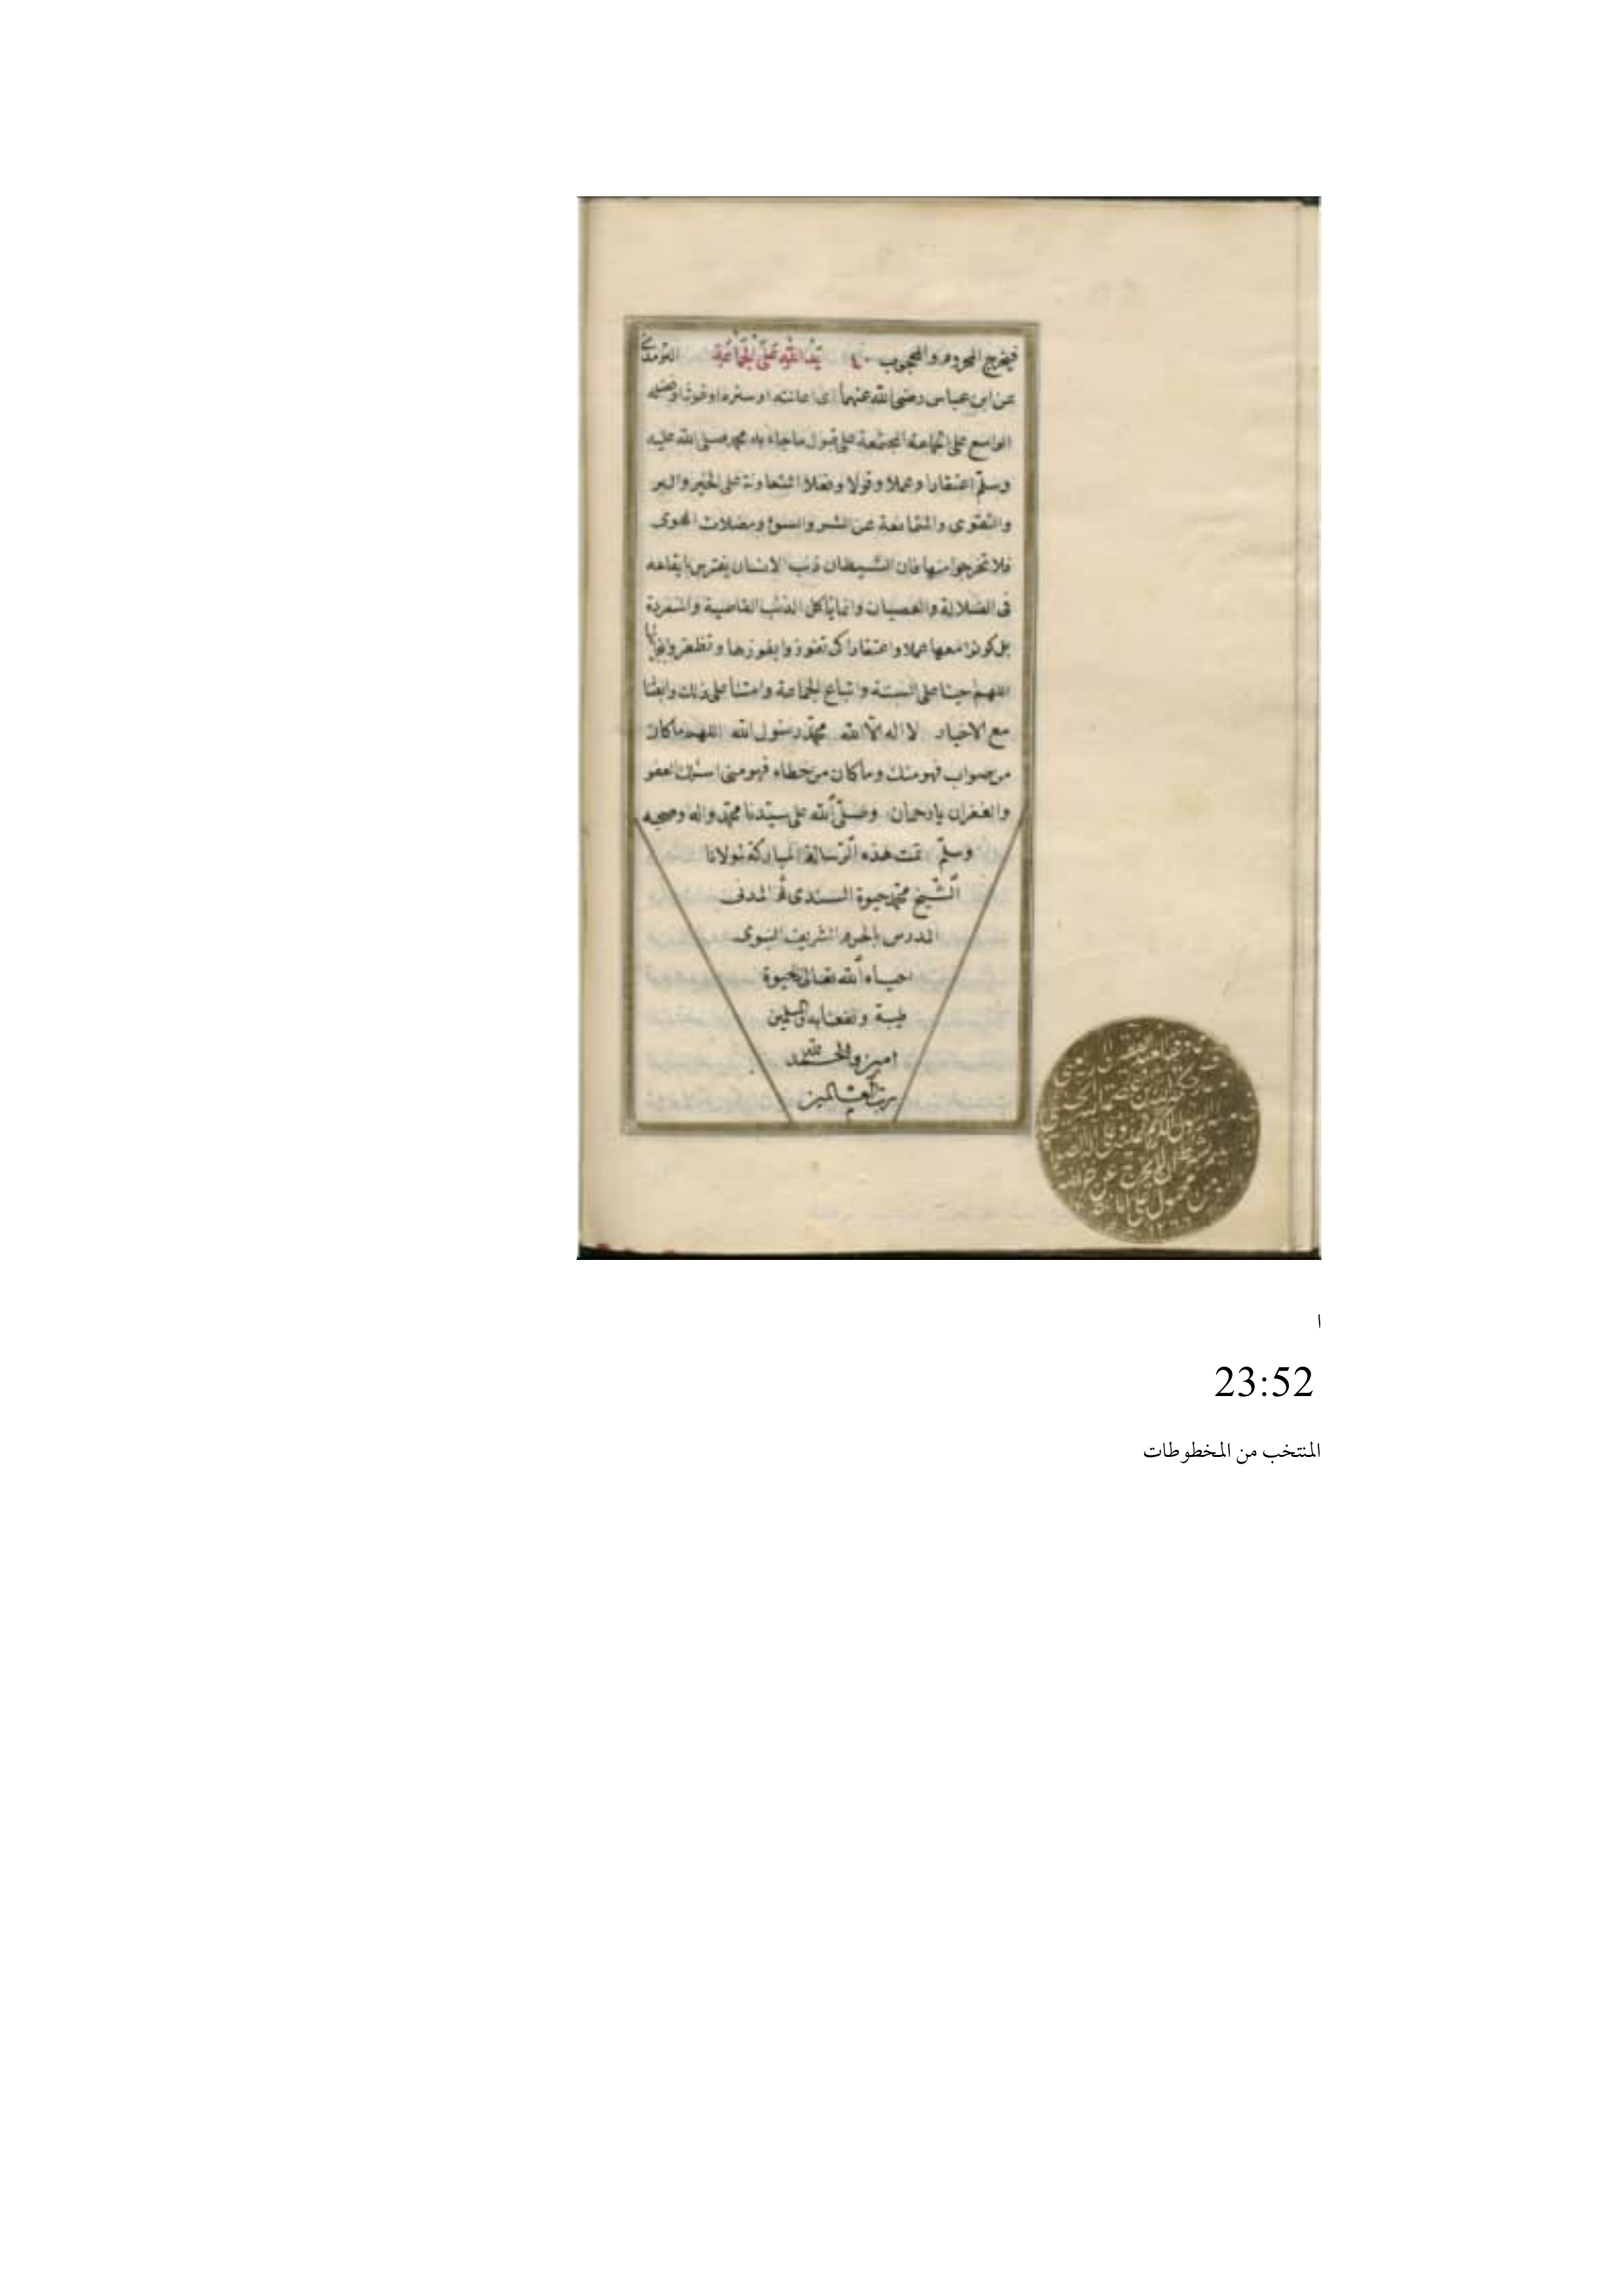 فيخرج المحروم والمحجوب ٤٠ يد الله على الجماعة الترمذي
عن ابن عباس رضى الله عنهما اى اعانته او ستره او قوته او فضله
الواسع على الجماعة المجتمعة على قبول ما جاء به محمد صلى الله عليه
وسلم اعتقادا وعملا وقولا وفعلا المتعاونة على الخير والبر
والتقوى والمتمانعة عن الشر والسوء ومضلات الهوى
فلا تخرجوا منها فان الشيطان ذئب الانسان يفترس بايقاعه
فى الضلالة والعصيان وانما ياكل الذئب القاصية والمنفردة
بل كونوا معها عملا واعتقادا كى تفوزوا بفوزها وتظفروا
اللهم احينا على السنة واتباع الجماعة وامتنا على ذلك وابعثنا
مع الاخيار لا اله الا الله محمد رسول الله اللهم ما كان
من صواب فهو منك وما كان من خطاء فهو منى اسئلك العفو
والغفران يا رحمان وصلى الله على سيدنا محمد واله وصحبه
وسلم تمت هذه الرسالة المباركة لمولانا
الشيخ محمد حيوة السندى ثم المدنى
المدرس بالحرم الشريف النبوى
احياه الله تعالى حيوة
طيبة ونفعنا به والمسلمين
امين والحمد لله
رب العالمين
ا
23:52
المنتخب من المخطوطات